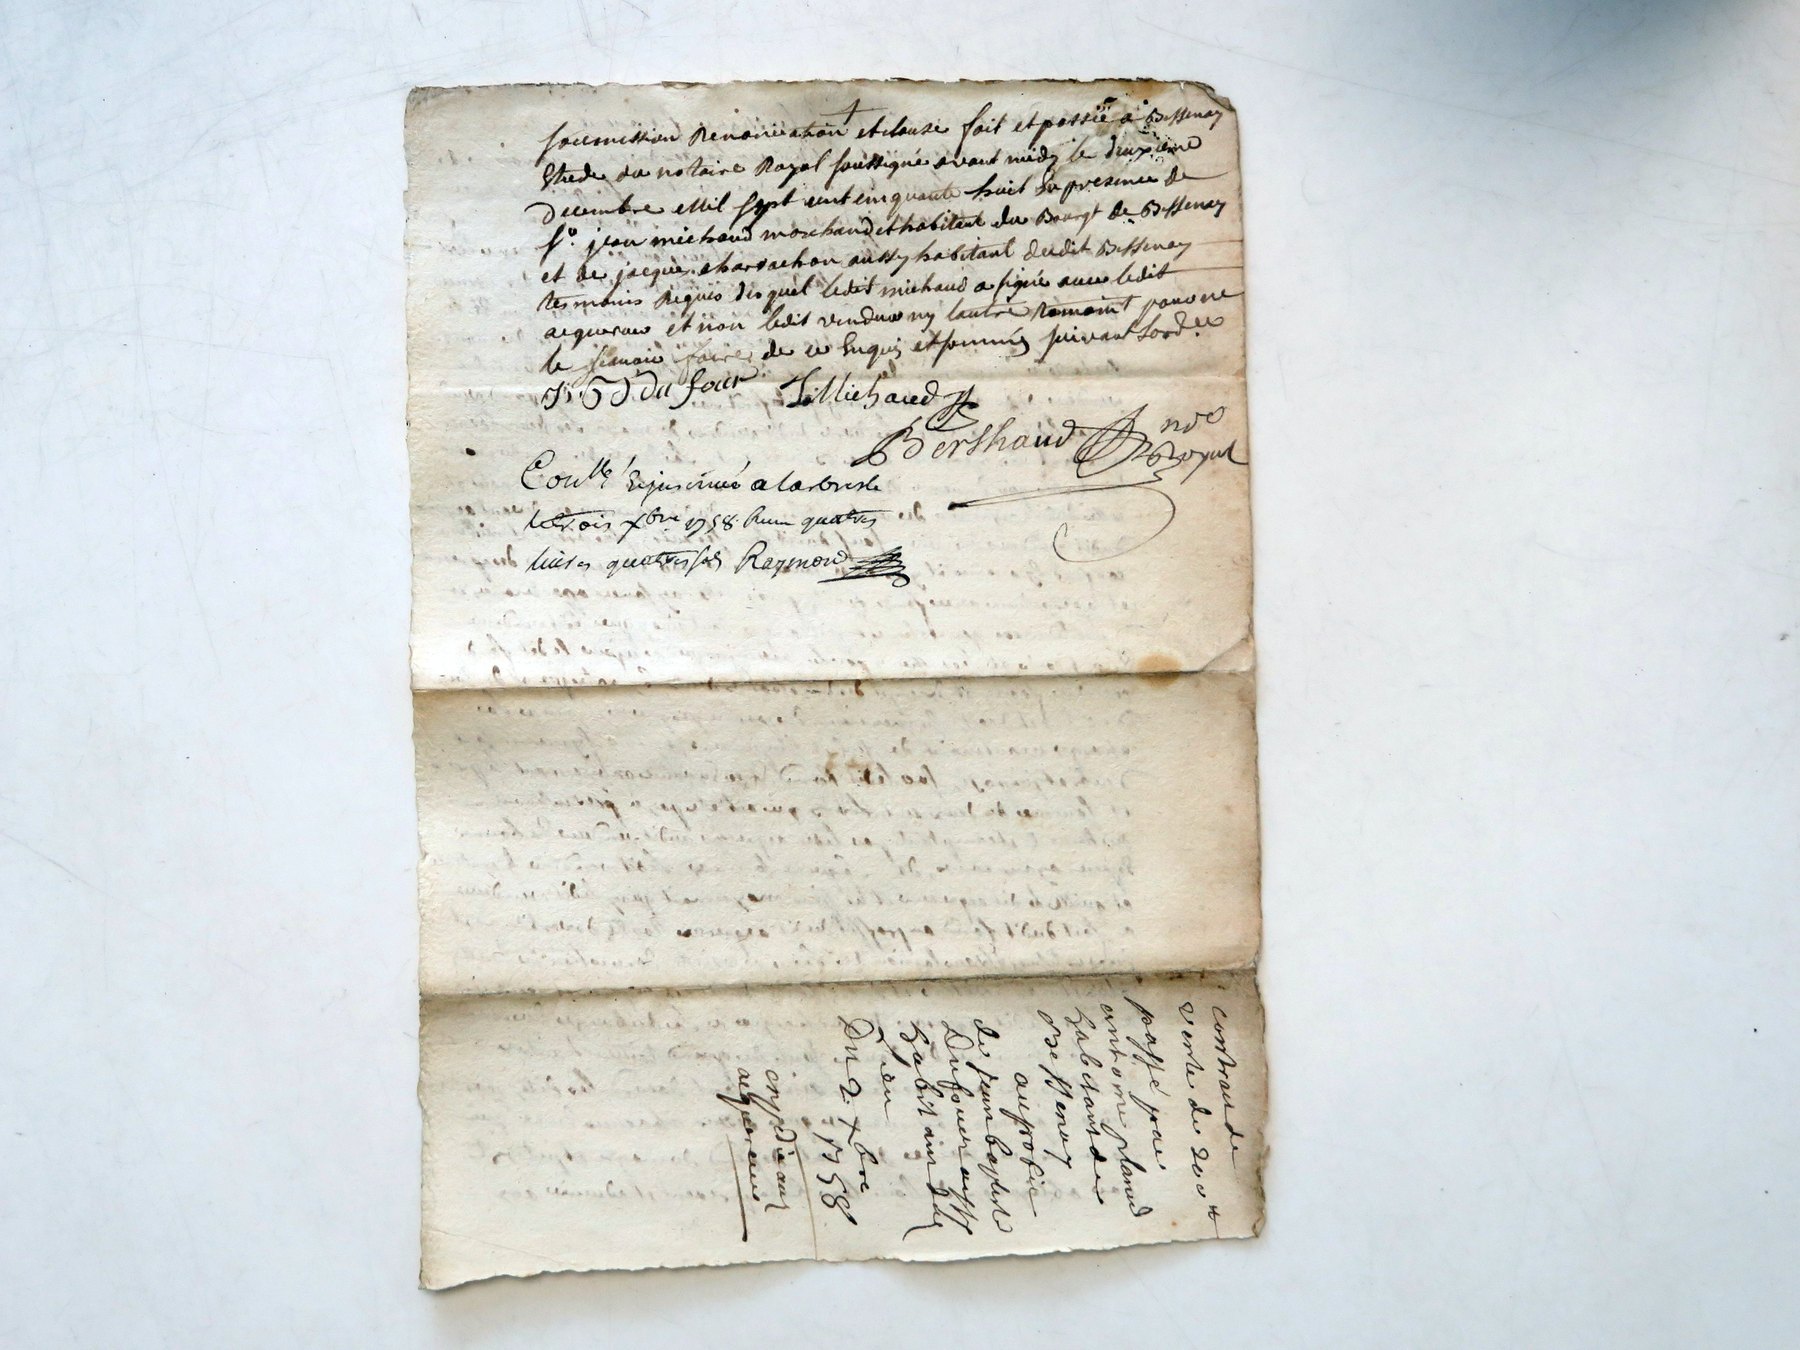 soumission Renonciation et clause fait et passé à Bessenay
Etude du notaire Royal soussigné avant midy le deuxième
Decembre Mil sept cent cinquante huit En presence de
Sr. jean michaud marchand et habitant du Bourgt de Bessenay
et de jacque charvachon aussy habitant dudit Bessenay
tesmoins Requis desquel ledit michaud a signé avec ledit
acquereur et non ledit vendeur ny lautre temoint pour ne
le scavoir faire de ce Enquis et sommés suivant Lord.ce
J. B. Du four J. Michaud
Berthaud nre
Royal
Con.llé Et insinué a Larbresle
le trois xbre 1758. Reçu quatres
livres quatres sols Raymond
contrat de
vente de 200 #
passé par
antoine planud
habitant de
Bessenay
au profit
de jean baptiste
Dufour aussy
habitant dud.
Lieu
Du 2. xbre
1758
expedié aud
acquereur